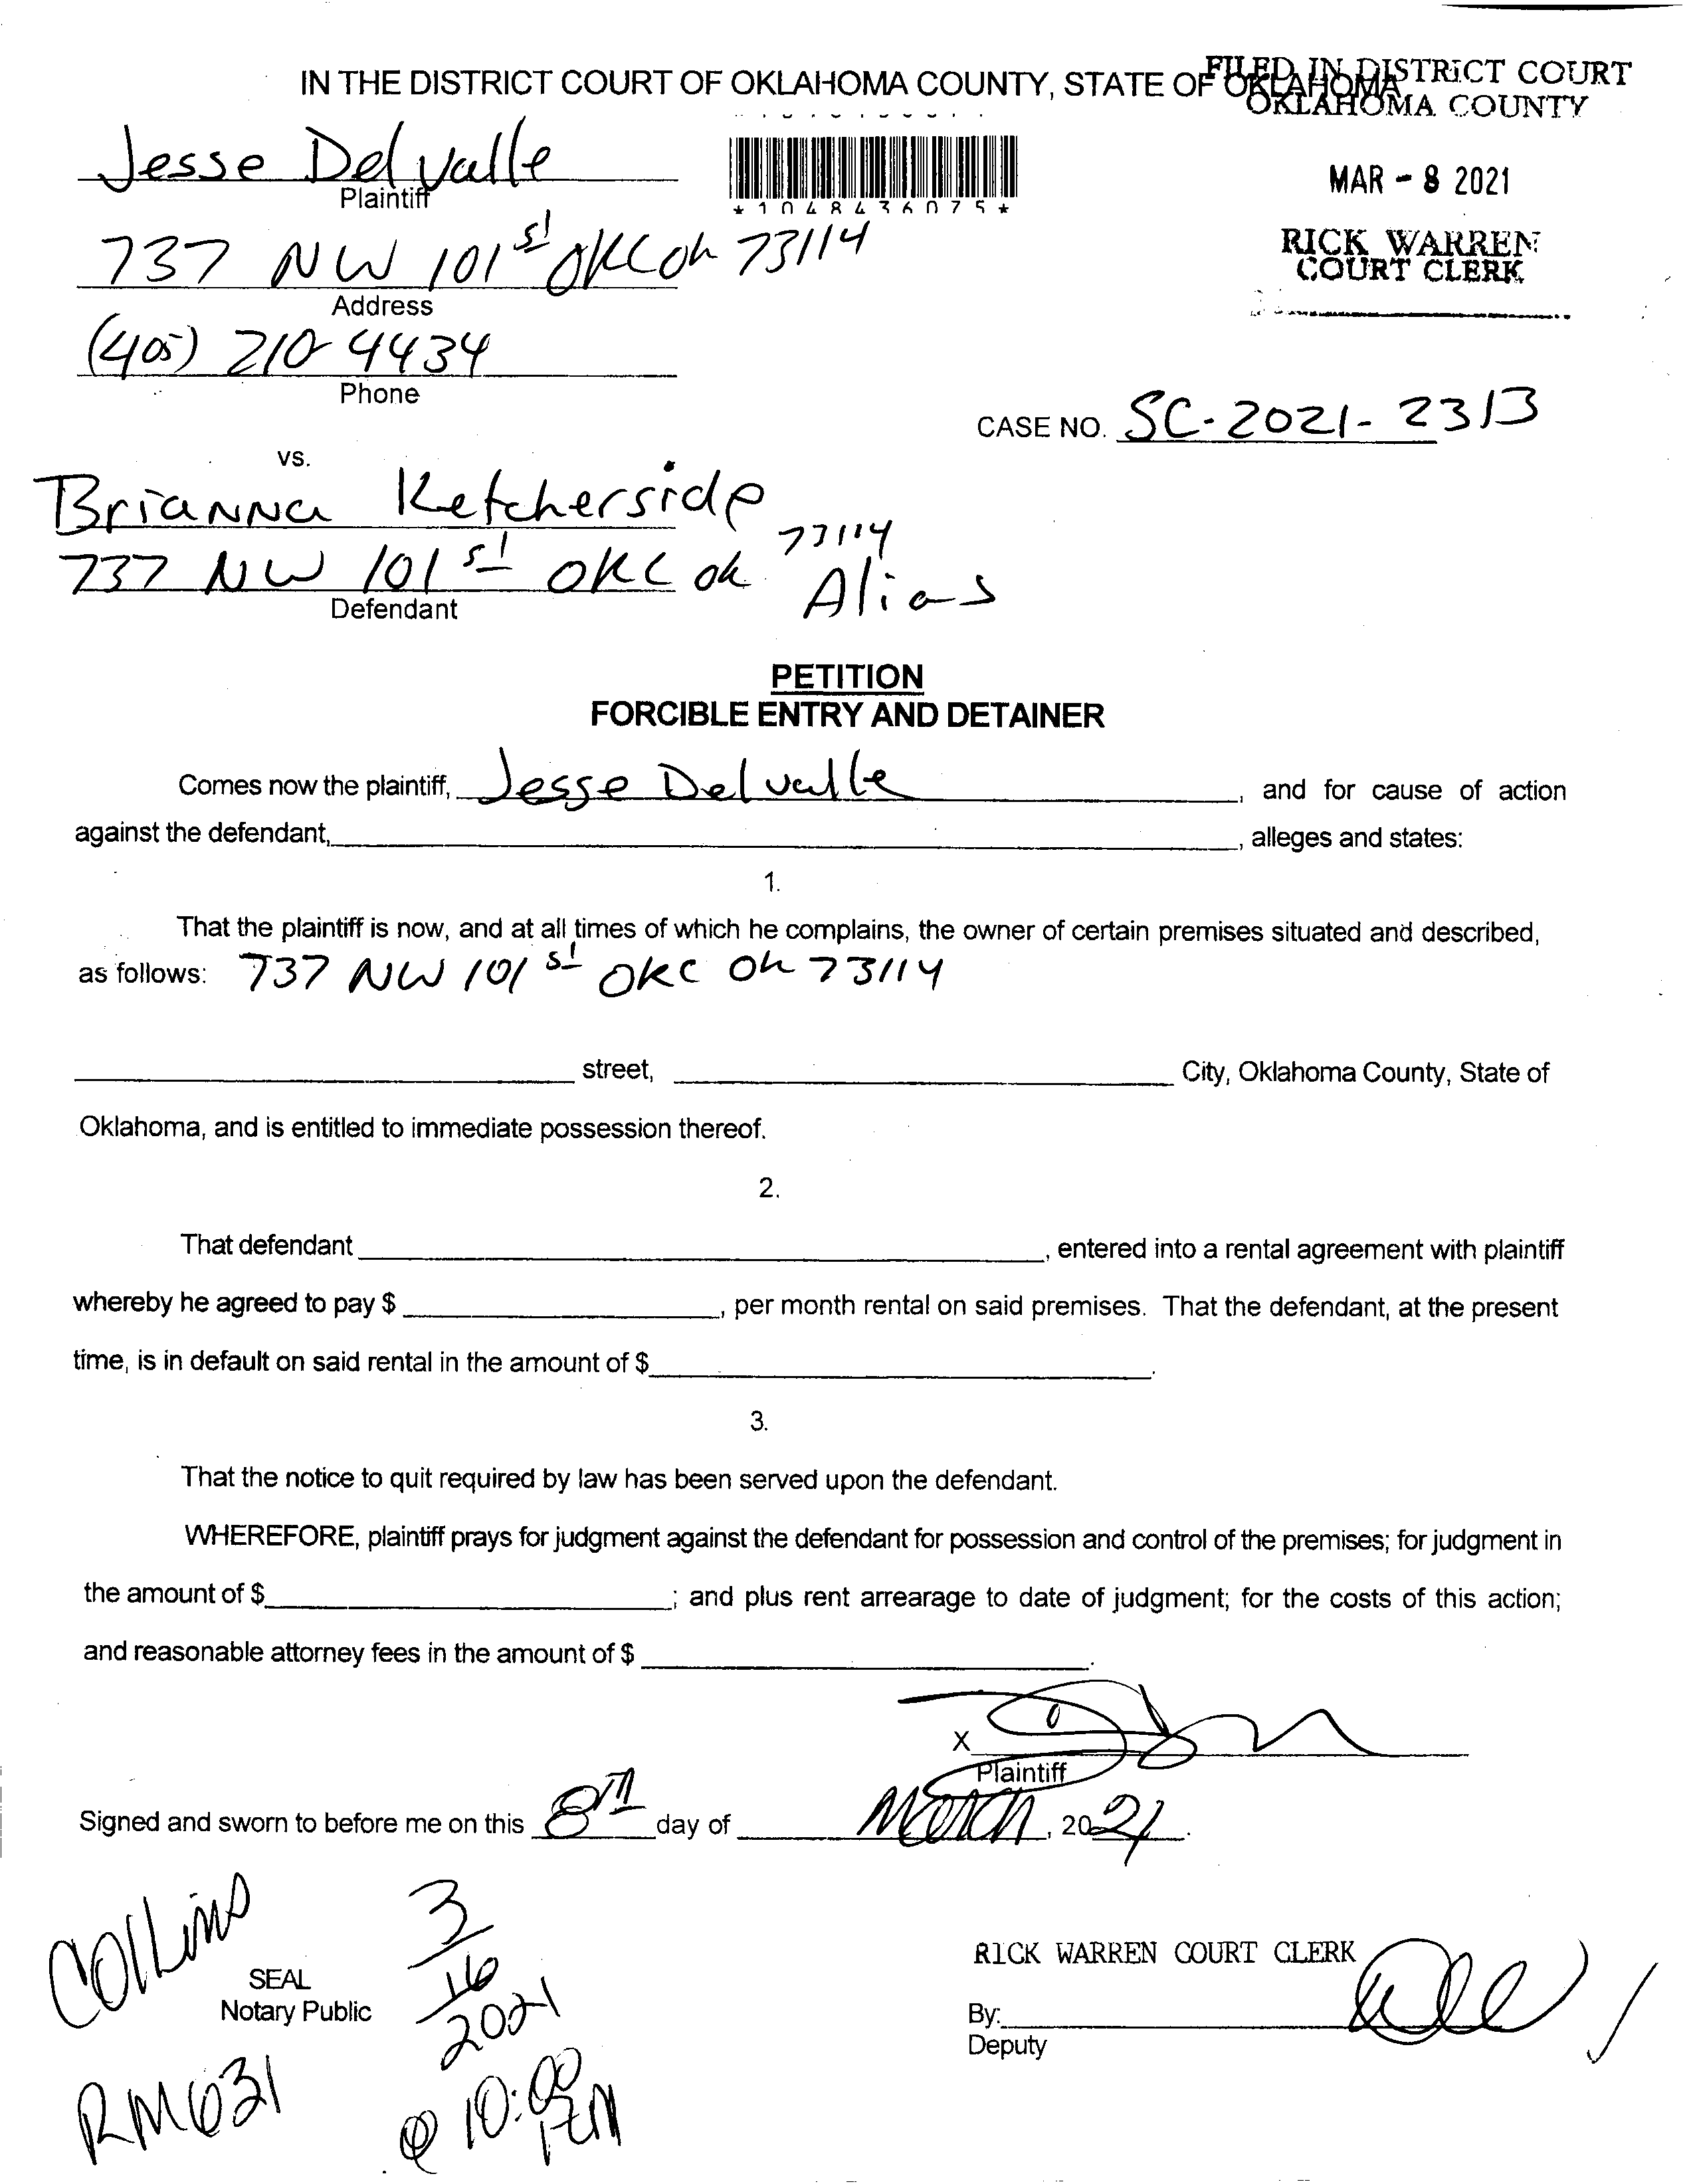 IN THE DISTRICT COURT OF OKLAHOMA COUNTY, STATE OF OKLAHOMA
FILED IN DISTRICT COURT
OKLAHOMA COUNTY
MAR - 8 2021
RICK WARREN
COURT CLERK
Jesse Del valle
Plaintiff
*1048436075*
737 NW 101st OKC Ok 73114
Address
(405) 210-4434
Phone
CASE NO. SC-2021-2313
vs.
Brianna Ketcherside
737 NW 101st OKC ok 73114
Defendant
Alias
PETITION
FORCIBLE ENTRY AND DETAINER
Comes now the plaintiff, Jesse Del valle, and for cause of action
against the defendant,, alleges and states:
1.
That the plaintiff is now, and at all times of which he complains, the owner of certain premises situated and described,
as follows: 737 NW 101st OKC Ok 73114
street, City, Oklahoma County, State of
Oklahoma, and is entitled to immediate possession thereof.
2.
That defendant, entered into a rental agreement with plaintiff
whereby he agreed to pay $, per month rental on said premises. That the defendant, at the present
time, is in default on said rental in the amount of $.
3.
That the notice to quit required by law has been served upon the defendant.
WHEREFORE, plaintiff prays for judgment against the defendant for possession and control of the premises; for judgment in
the amount of $; and plus rent arrearage to date of judgment; for the costs of this action;
and reasonable attorney fees in the amount of $.
X
Plaintiff
Signed and sworn to before me on this 8TH day of March, 2021.
Collins
3/16/2021
SEAL
Notary Public
RICK WARREN COURT CLERK
By:
Deputy
RM631
@ 10:00